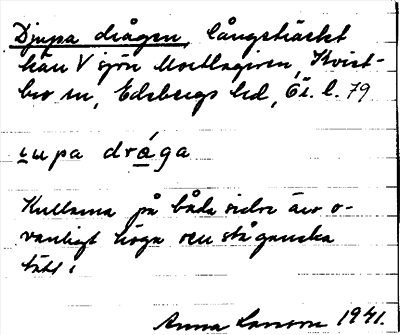 Djupa drågen, långsträckt
kärr V sjön Mortlagiren, Kvist-
bro sn, Edsbergs hd, Ör. l. 79
ɩupa dråga
Kullarna på båda sidor äro o-
vanligt höga och stå ganska
tätt.
Anna Larsson 1941.